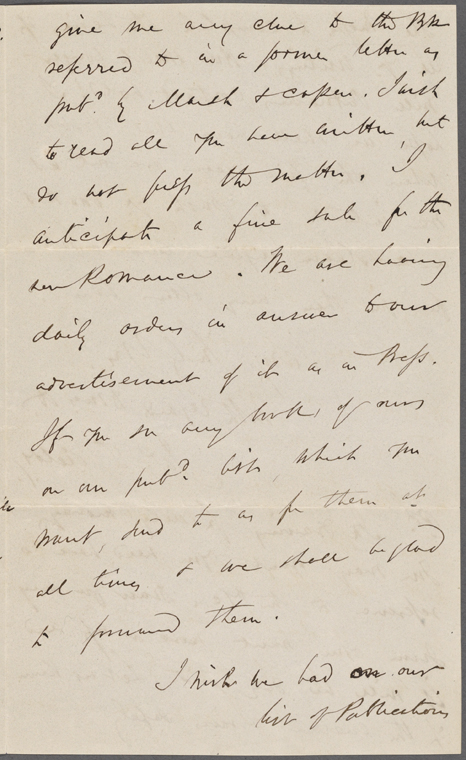 give me any clue to the Bk
referred to in a former letter as
pub.d by Marsh & Capen. I wish
to read all you have written, but
do not press the matter. I
anticipate a fine sale for the
new Romance. We are having
daily orders in answer to our
advertisement of it as in Press.
If you see any books of ours
on our pub.d lists which you
want, send to us for them at
all times & we shall be glad
to forward them.
I wish we had on our
list of Publications